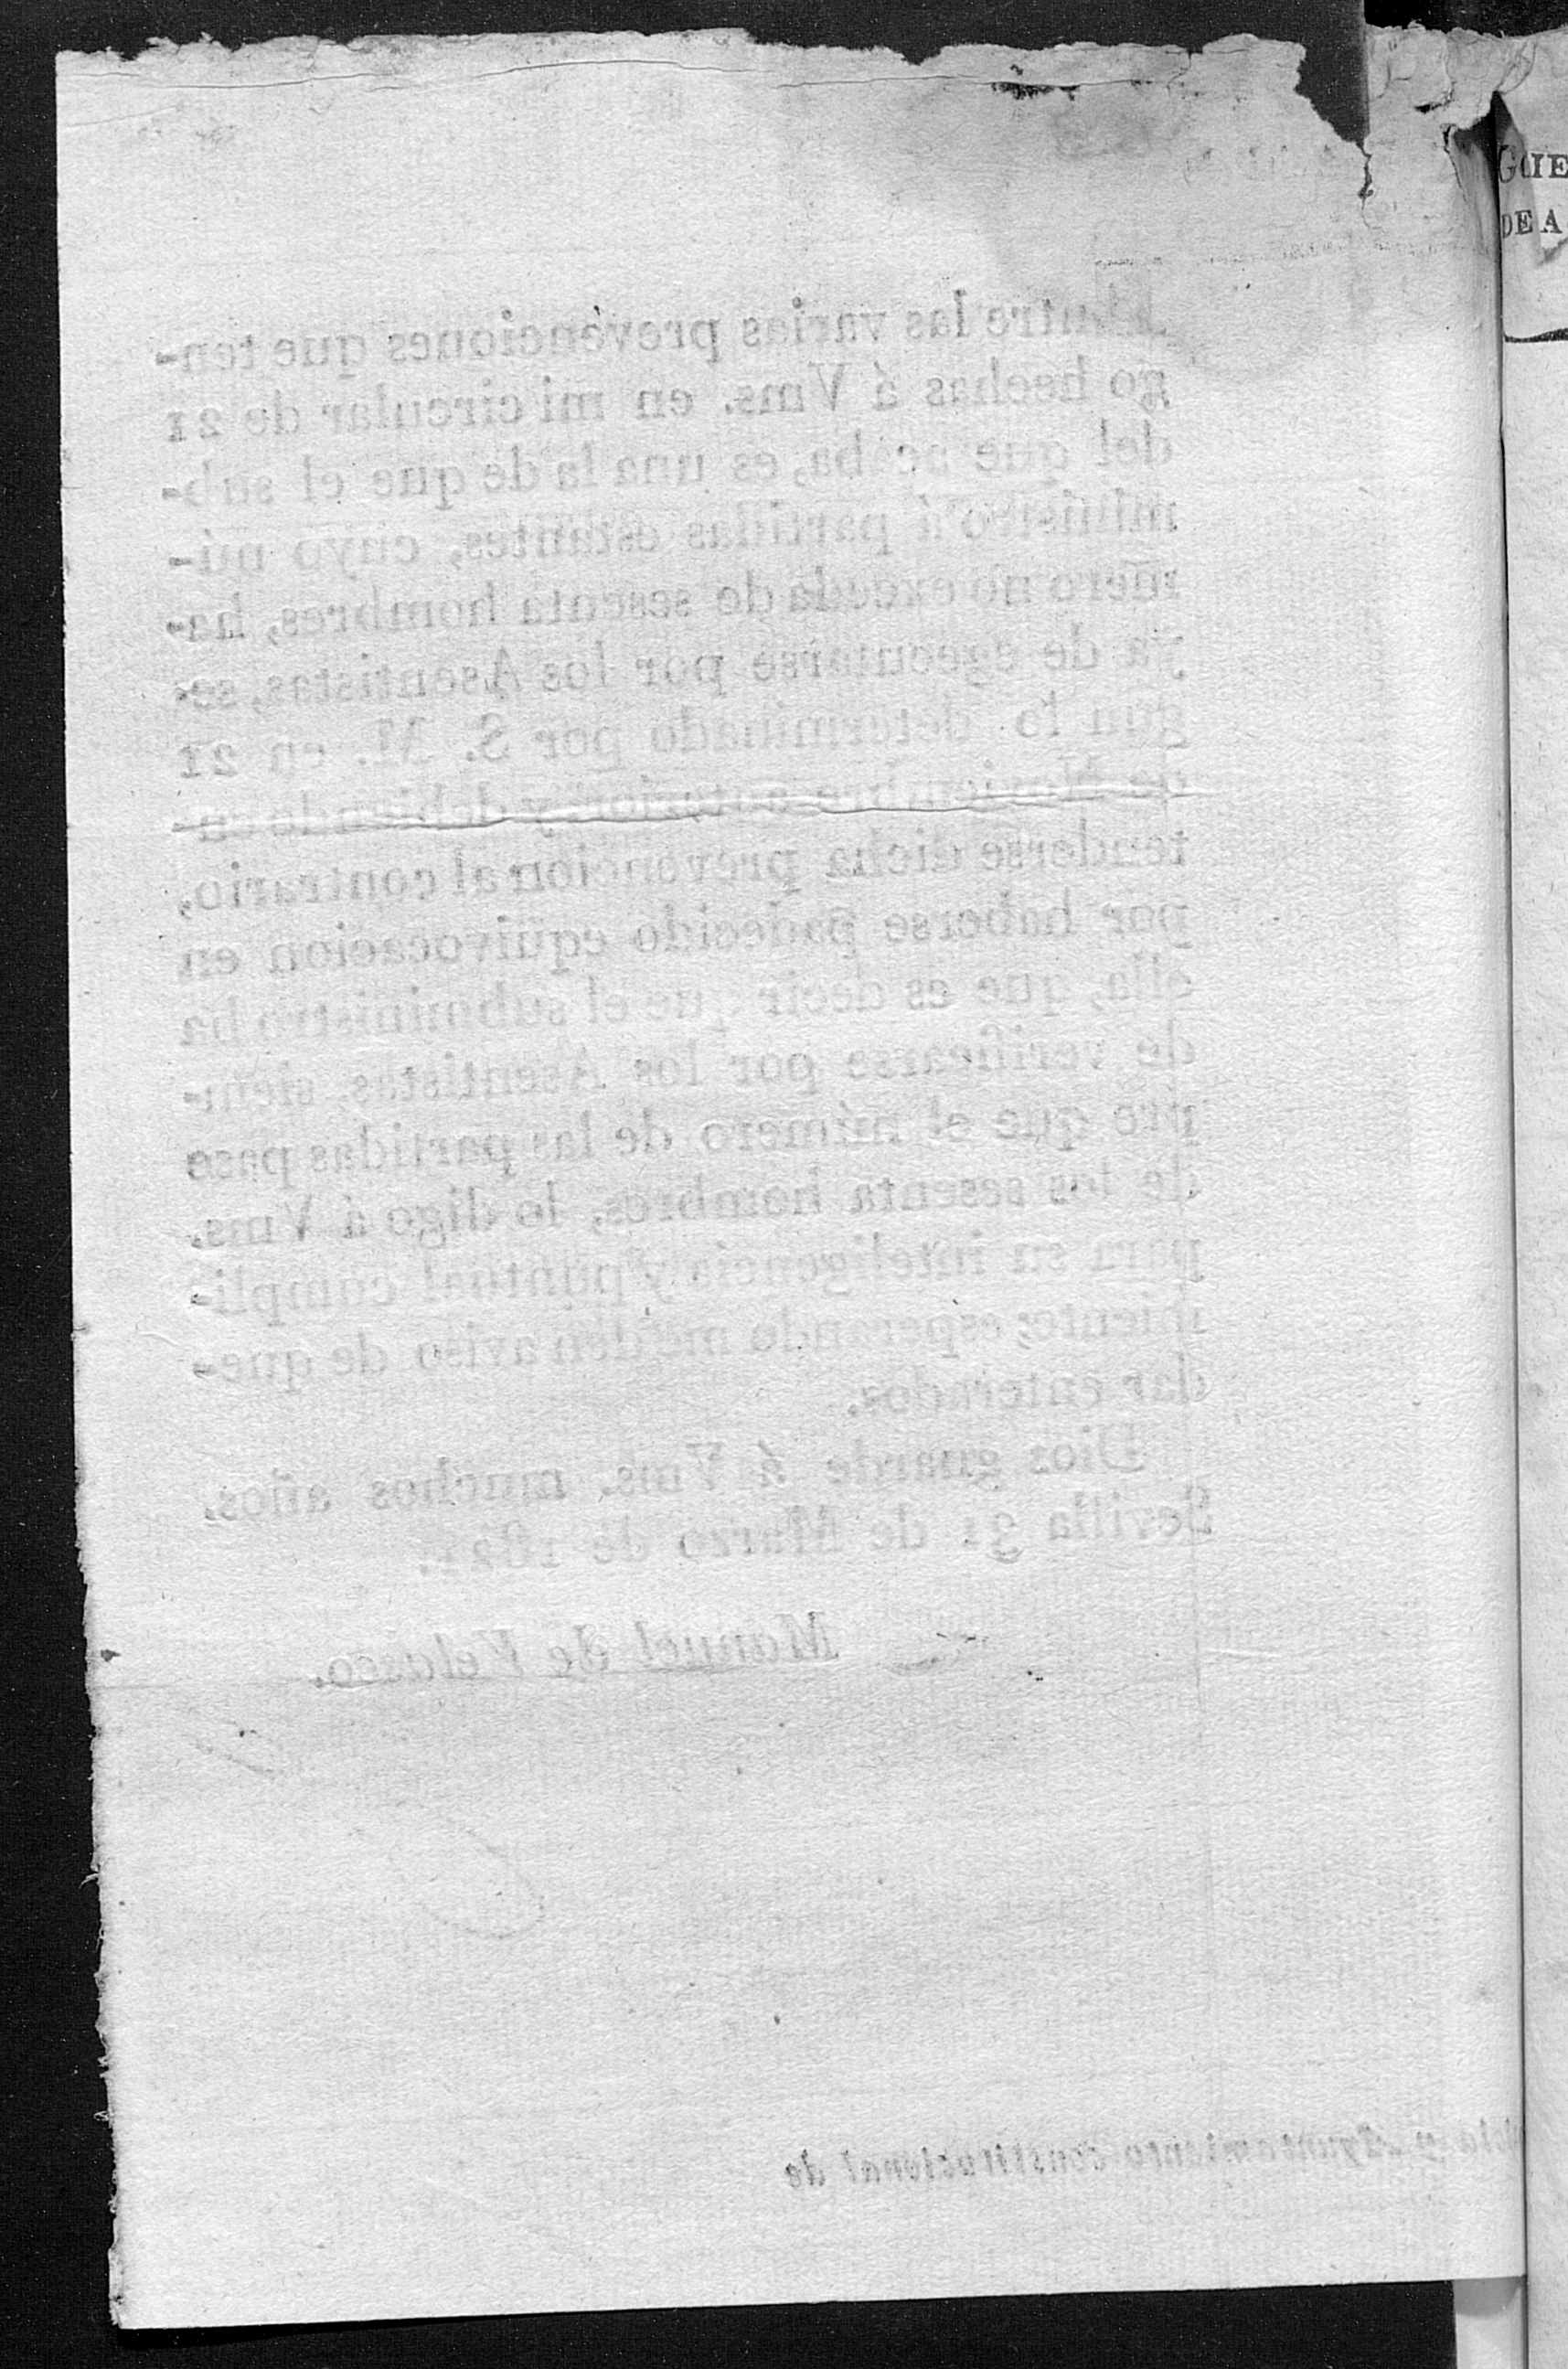 Entre las varias prevenciones que ten-
go hechas á Vms. en mi circular de 21
del que acaba, es una la de que el sub-
ministro á partidas estantes, cuyo nú-
mero no exceda de sesenta hombres, ha-
ya de egecutarse por los Asentistas, se-
gun lo determinado por S. M. en 21
de Noviembre anterior; y debiendo en-
tenderse dicha prevencion al contrario,
por haberse padecido equivocacion en
ella, que es decir que el subministro ha
de verificarse por los Asentistas, siem-
pre que el número de las partidas pase
de los sesenta hombres, lo digo á Vms.
para su inteligencia y puntual cumpli-
miento; esperando me den aviso de que-
dar enterados.
Dios guarde á Vms. muchos años.
Sevilla 31 de Marzo de 1821.
Manuel de Velasco.
y Ayuntamiento constitucional de
DE A